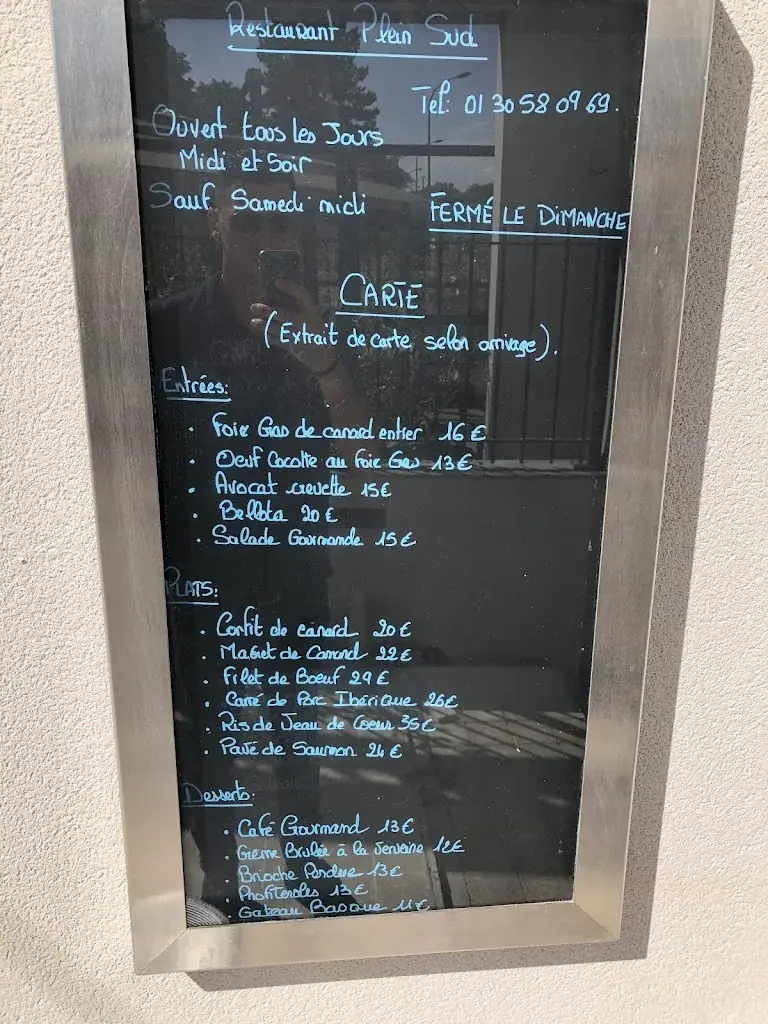 Restaurant Plein Sud
Tel: 01 30 58 09 69.
Ouvert tous les Jours
Midi et Soir
Sauf Samedi midi
FERMÉ LE DIMANCHE
CARTE
(Extrait de carte selon arrivage).
Entrées:
• Foie Gras de canard entier 16€
• Oeuf Cocotte au Foie Gras 13€
• Avocat crevette 15€
• Bellota 20€
• Salade Gourmande 15€
PLATS:
• Confit de canard 20€
• Magret de Canard 22€
• Filet de Boeuf 29€
• Carré de Porc Ibérique 26€
• Ris de Veau de Coeur 35€
• Pavé de Saumon 24€
Desserts:
• Café Gourmand 13€
• Crème Brulée à la Verveine 12€
• Brioche Perdue 13€
• Profiteroles 13€
• Gateau Basque 11€